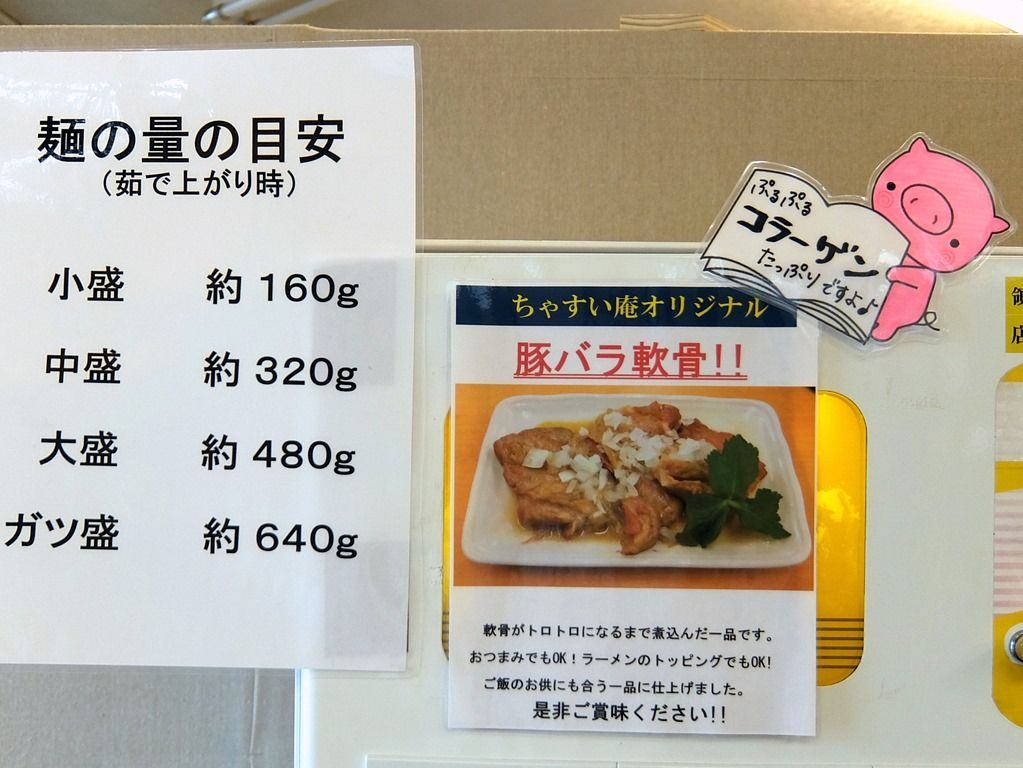 麺の量の目安
（茹で上がり時）
小盛 約 160g
中盛 約 320g
大盛 約 480g
ガツ盛 約 640g
ぷるぷる
コラーゲン
たっぷりですよ♪
ちゃすい庵オリジナル
豚バラ軟骨!!
軟骨がトロトロになるまで煮込んだ一品です。
おつまみでもOK！ラーメンのトッピングでもOK!
ご飯のお供にも合う一品に仕上げました。
是非ご賞味ください!!
店